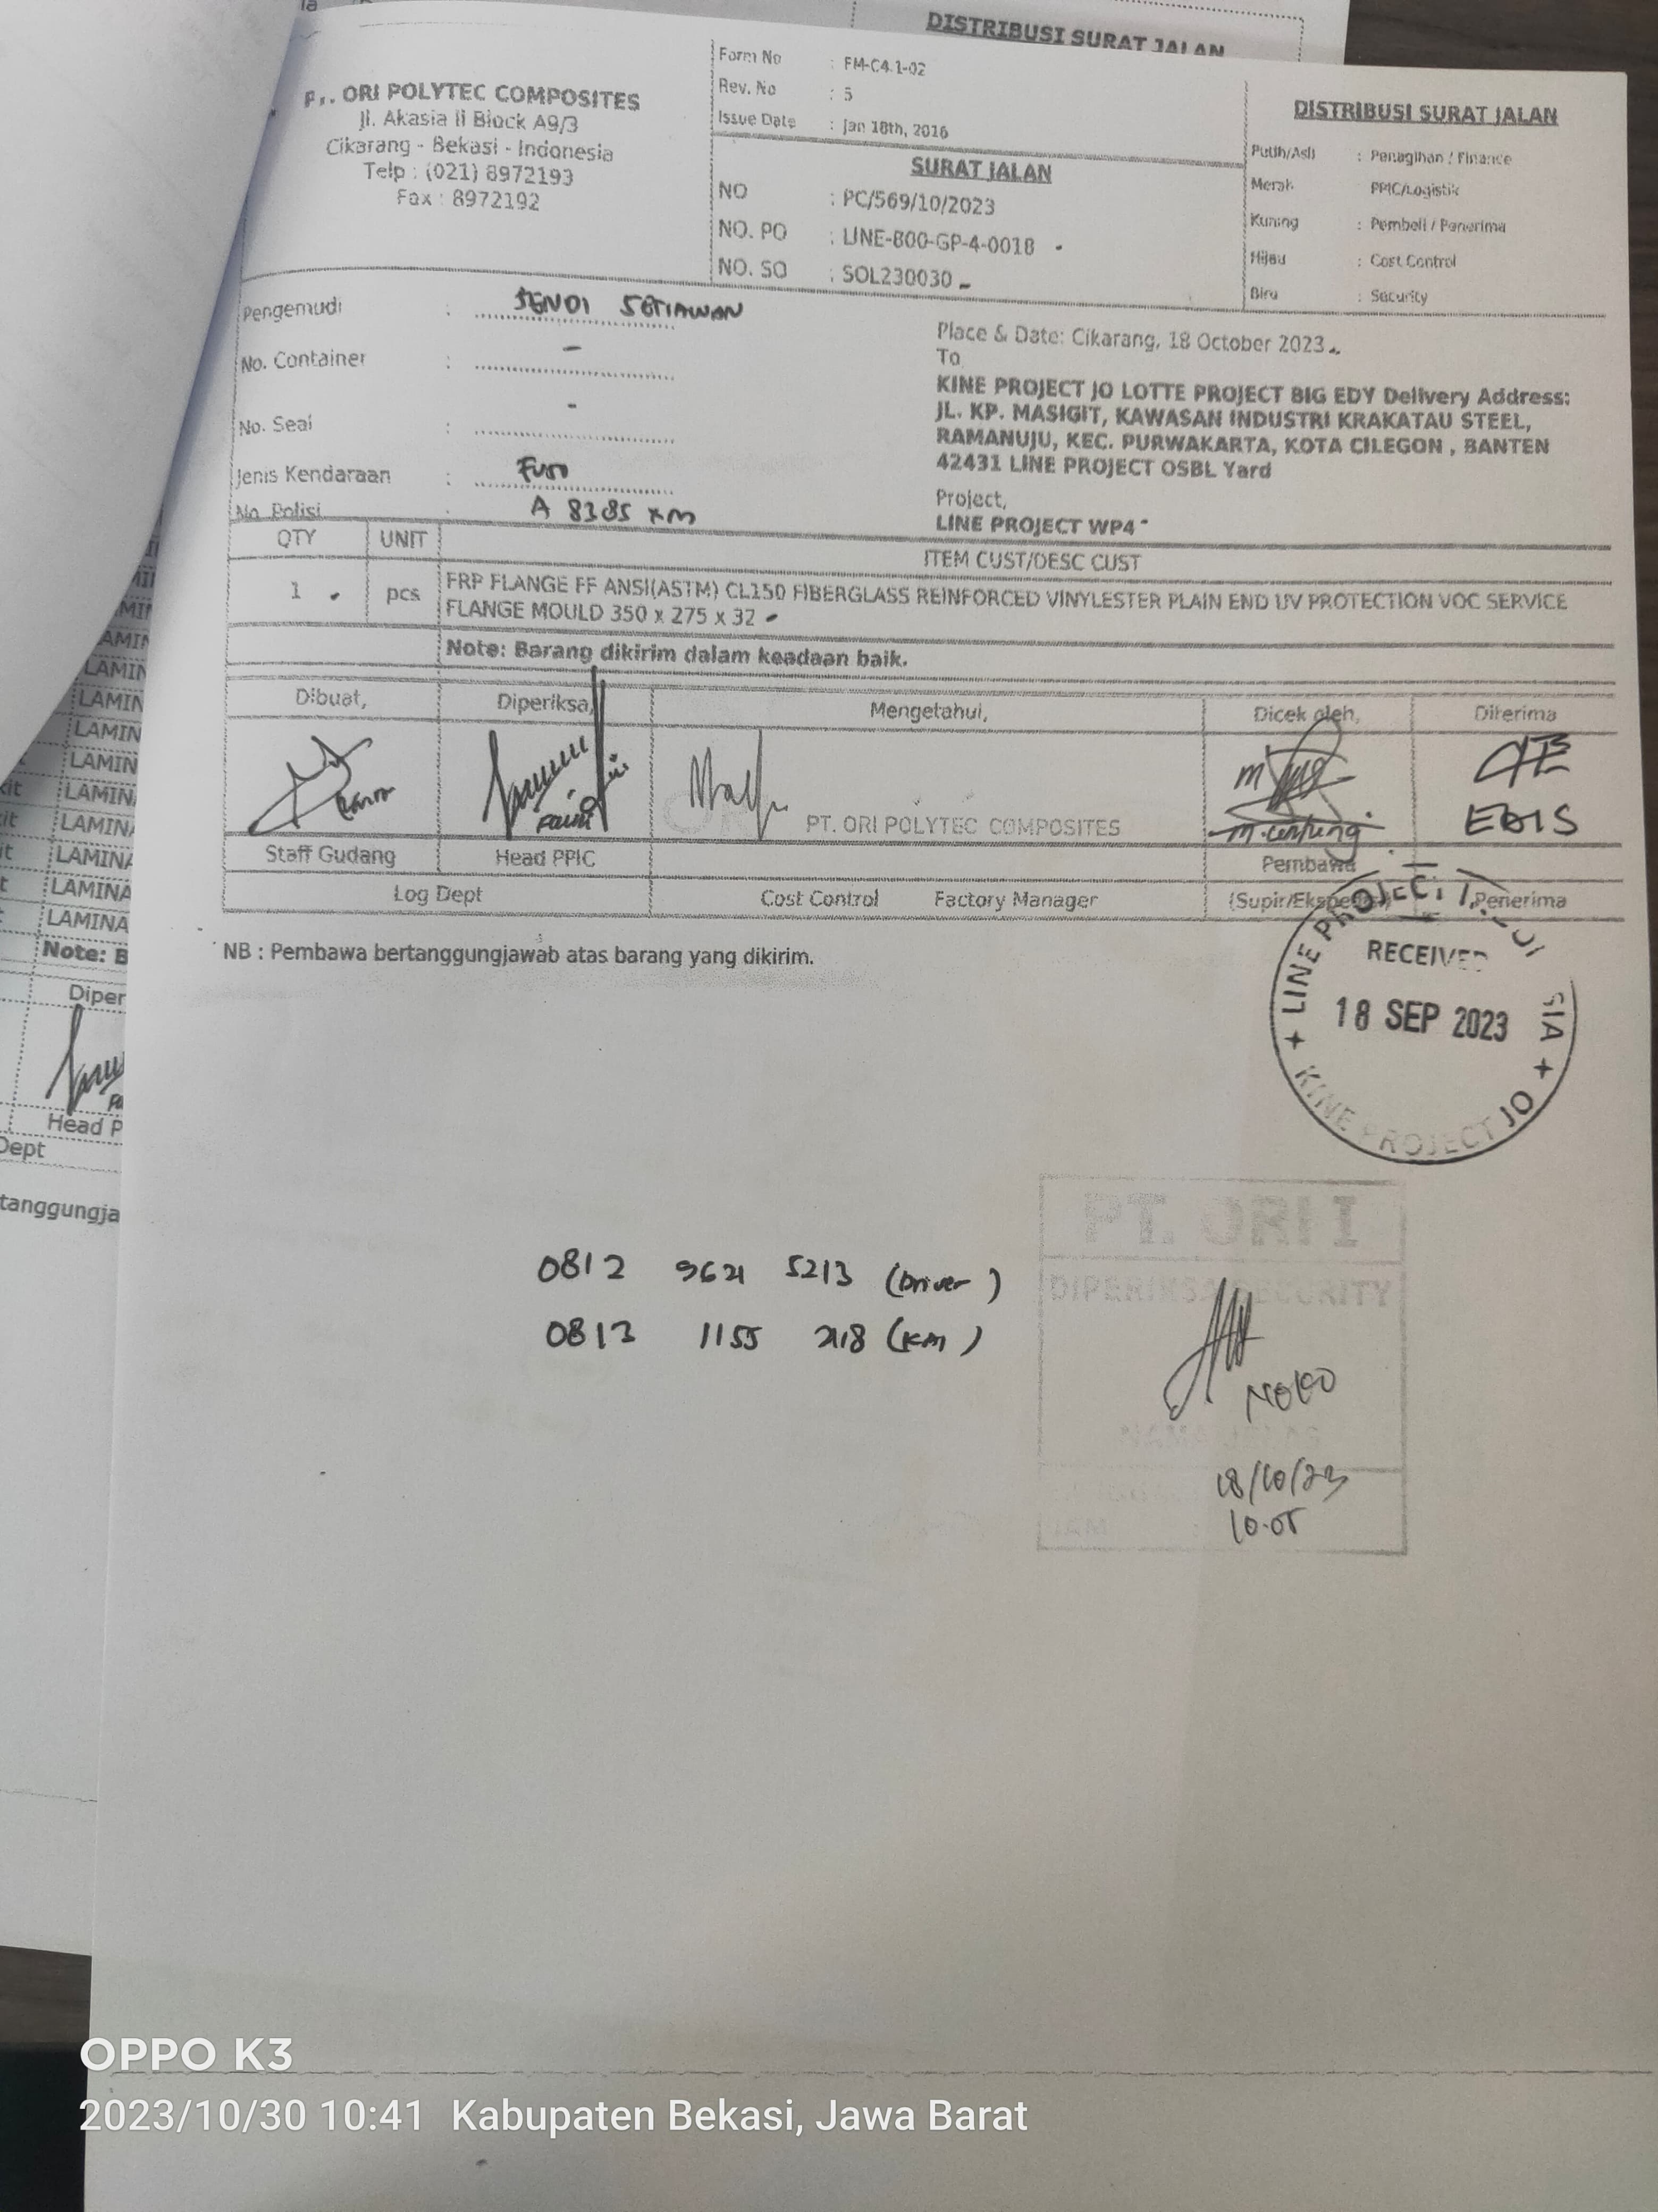 DISTRIBUSI SURAT JALAN
PT. ORI POLYTEC COMPOSITES
Jl. Akasia II Block A9/3
Cikarang - Bekasi - Indonesia
Telp : (021) 8972193
Fax : 8972192
Form No : FM-C4.1-02
Rev. No : 5
Issue Date : Jan 18th, 2016
SURAT JALAN
NO : PC/569/10/2023
NO. PO : LINE-800-GP-4-0018
NO. SO : SOL230030
DISTRIBUSI SURAT JALAN
Putih/Asli : Penagihan / Finance
Merah PPIC/Logistik
Kuning : Pembeli / Penerima
Hijau : Cost Control
Biru : Security
Pengemudi : SENDI SETIAWAN
No. Container : -
No. Seal : -
Jenis Kendaraan : Fuso
No. Polisi : A 8385 XM
Place & Date: Cikarang, 18 October 2023
To
KINE PROJECT JO LOTTE PROJECT BIG EDY Delivery Address:
JL. KP. MASIGIT, KAWASAN INDUSTRI KRAKATAU STEEL,
RAMANUJU, KEC. PURWAKARTA, KOTA CILEGON , BANTEN
42431 LINE PROJECT OSBL Yard
Project,
LINE PROJECT WP4
QTY UNIT ITEM CUST/DESC CUST
1 pcs FRP FLANGE FF ANSI(ASTM) CL150 FIBERGLASS REINFORCED VINYLESTER PLAIN END UV PROTECTION VOC SERVICE
FLANGE MOULD 350 x 275 x 32
Note: Barang dikirim dalam keadaan baik.
Dibuat, Diperiksa, Mengetahui, Dicek oleh, Diterima
PT. ORI POLYTEC COMPOSITES
EDIS
Staff Gudang Head PPIC Pembawa
Log Dept Cost Control Factory Manager (Supir/Ekspedisi) Penerima
NB : Pembawa bertanggungjawab atas barang yang dikirim.
LINE PROJECT
RECEIVED
18 SEP 2023
KINE PROJECT JO
PT. ORI I
DIPERIKSA SECURITY
0812 9621 5213 (Driver)
0813 1155 (KM)
18/10/23
10.05
LAMIN
LAMIN
LAMIN
LAMIN
LAMINA
LAMINA
LAMINA
LAMINA
Note: B
Diper
Head P
Dept
tanggungja
OPPO K3
2023/10/30 10:41 Kabupaten Bekasi, Jawa Barat